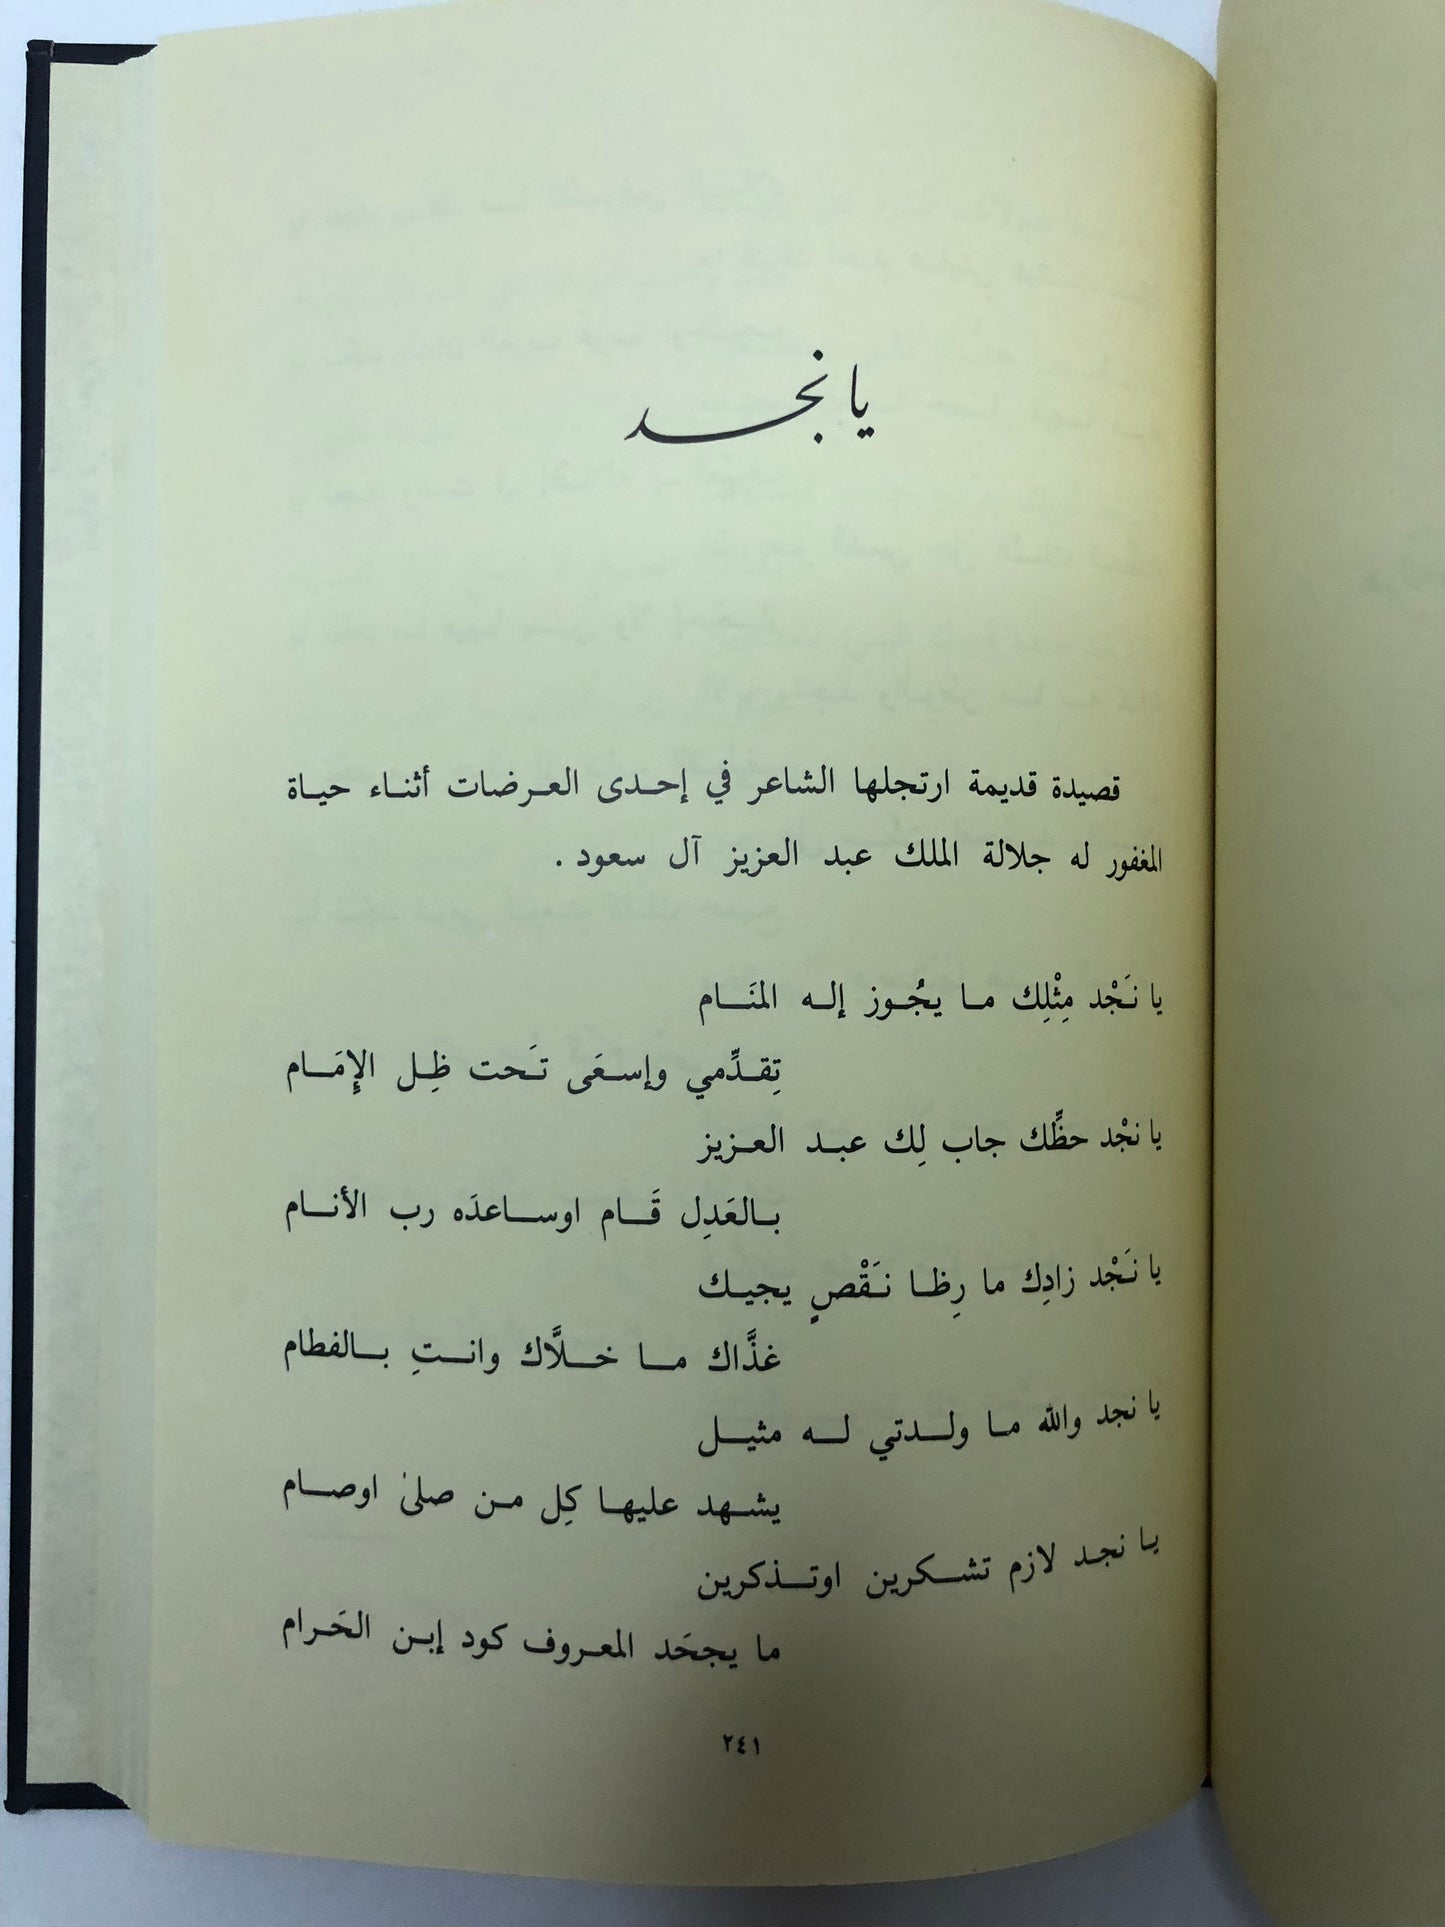 يا نجد
قصيدة قديمة ارتجلها الشاعر في إحدى العرضات أثناء حياة
المغفور له جلالة الملك عبد العزيز آل سعود .
يا نَجْد مِثْلِك ما يجُوز إله المنَام
تِقدِّمي وإسعَى تَحت ظِل الإِمَام
يا نجْد حظِّك جاب لِك عبد العزيز
بالعَدِل قَام اوساعدَه رب الأنام
يا نَجْد زادِك ما رِظا نَقْصٍ يجيك
غذَّاك ما خلَّاك وانتِ بالفطام
يا نجد والله ما ولدتي له مثيل
يشهد عليها كِل من صلىٰ اوصام
يا نجد لازم تشكرين اوتذكرين
ما يجحَد المعروف كود إبن الحَرام
٢٤١